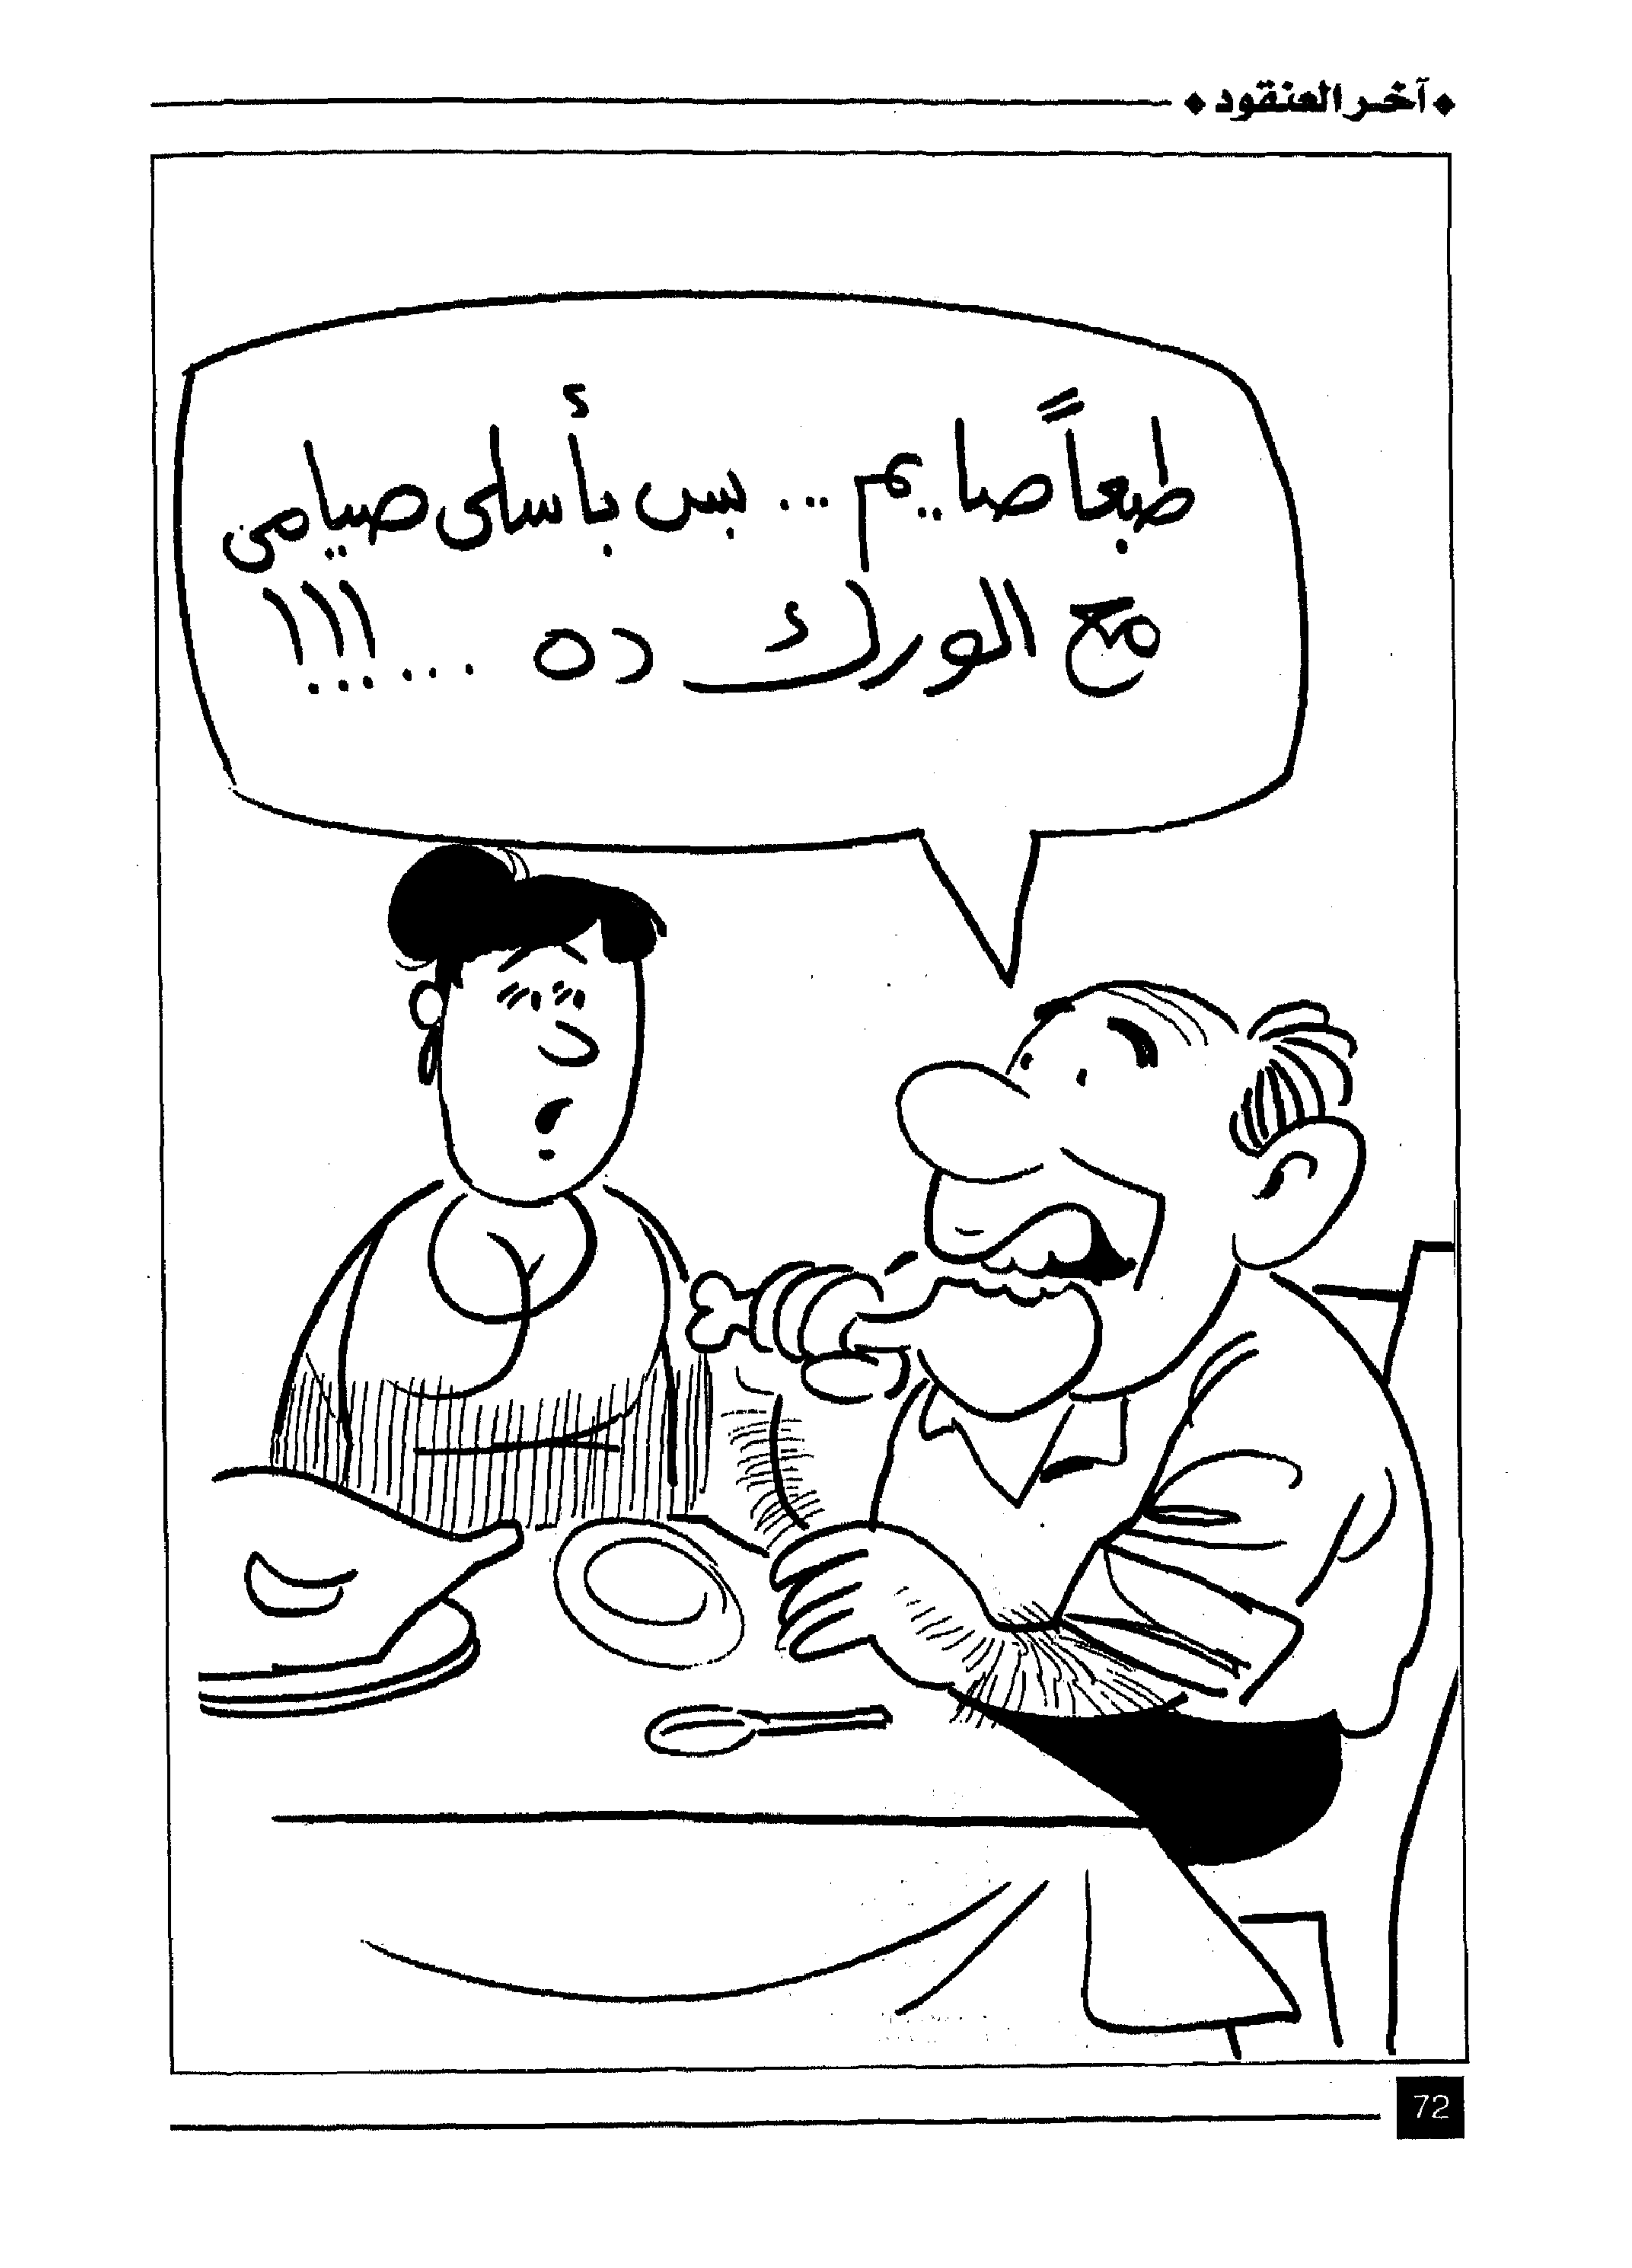 آخر العنقود
طبعاً صايم ... بس بأسلى صيامى
مع الورك ده ...!!!
72